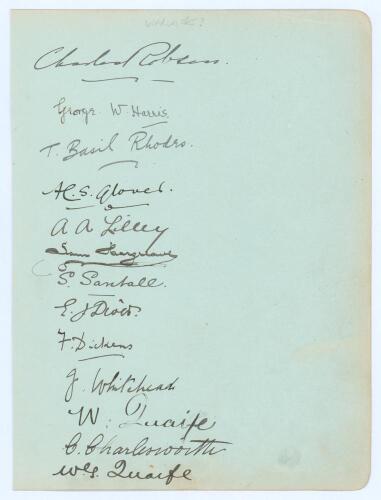 Charles Robson.
George W. Harris.
T. Basil Rhodes.
A.C.S. Glover.
A A Lilley
Sam Hargreave
S. Santall.
E. J Diver.
F. Dickens
J. Whitehead
W. Quaife
C. Charlesworth
W G. Quaife